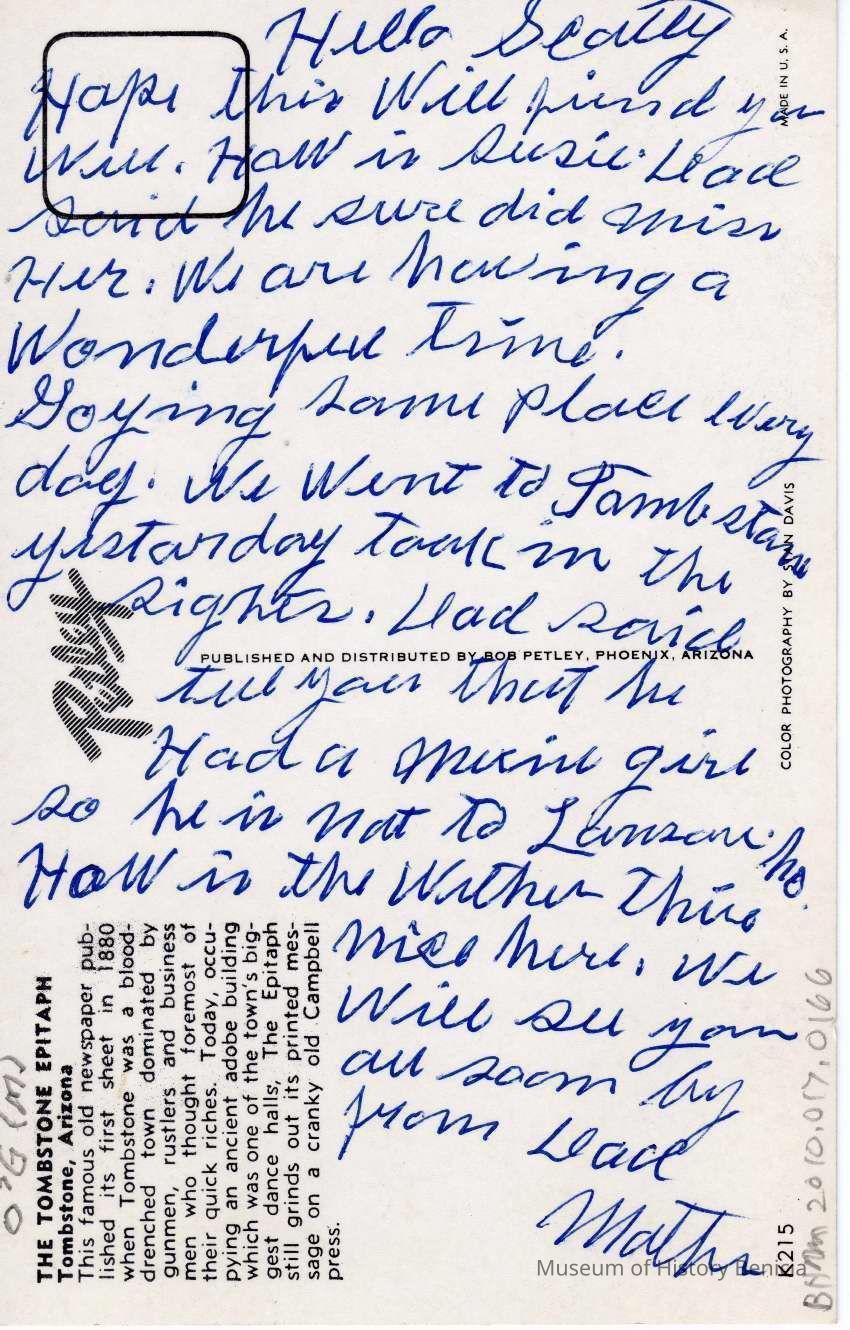 Hello Scotty
Hope this Will fiend you
Will. HoW is Susie. Dad
said he sure did miss
Her. We are having a
Wonderful time.
Goying same place every
day. We Went to Tombstone
yestarday took in the
sights. Dad said
tell you that he
Had a girl
so he is not to Lonsome. ho.
HoW is the Wether
nice here. We
Will see you
all soon by
from Dad
Mother
MADE IN U. S. A.
COLOR PHOTOGRAPHY BY DAVIS
K215
Petley
PUBLISHED AND DISTRIBUTED BY BOB PETLEY, PHOENIX, ARIZONA
THE TOMBSTONE EPITAPH
Tombstone, Arizona
This famous old newspaper pub-
lished its first sheet in 1880
when Tombstone was a blood-
drenched town dominated by
gunmen, rustlers and business
men who thought foremost of
their quick riches. Today, occu-
pying an ancient adobe building
which was one of the town's big-
gest dance halls, The Epitaph
still grinds out its printed mes-
sage on a cranky old Campbell
press.
2010.017.0166
Museum of History Benicia